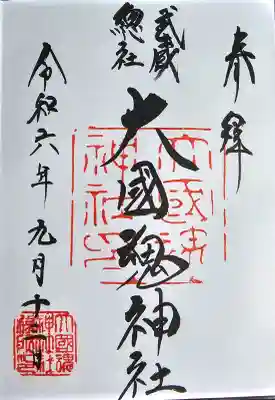 奉拝
武蔵
總社
大國魂神社
令和六年九月十二日